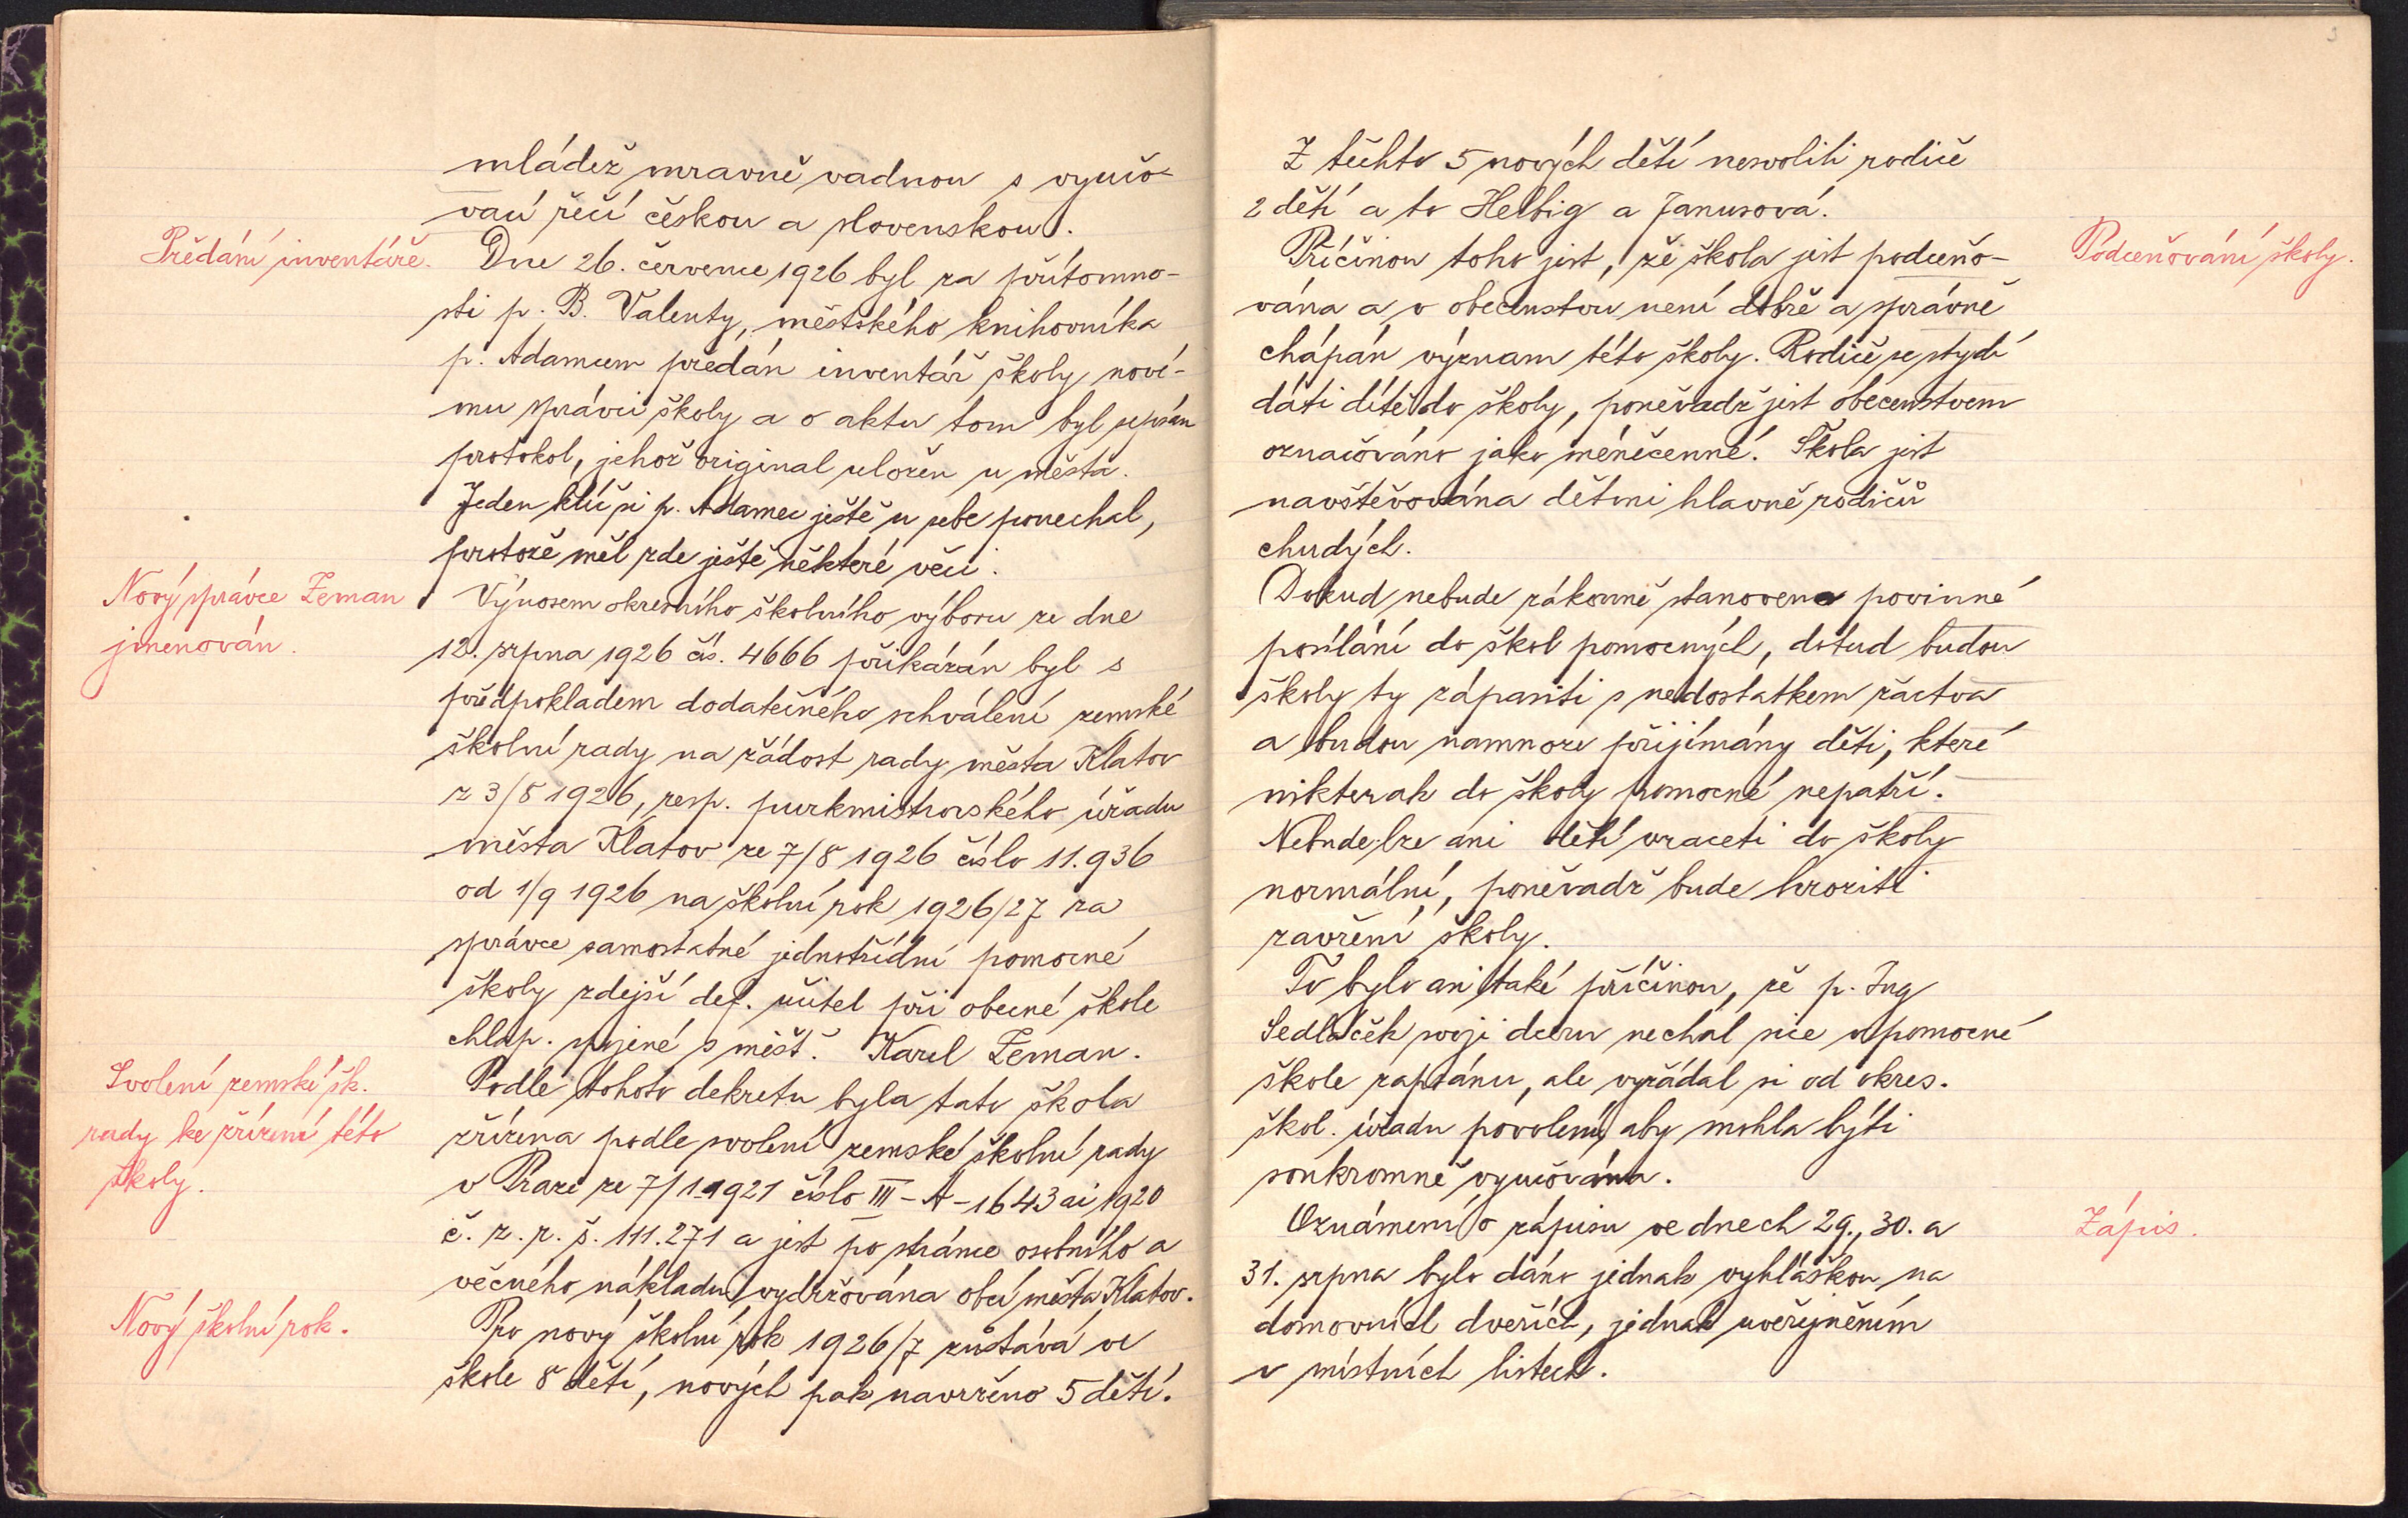 mládež mravně vadnou s vyučo-
vaí řečí českou a slovenskou.
Předání inventáře.
Dne 26. července 1926 byl za přítomno-
sti p. B. Valenty, městského knihovníka
p. Adamcem předán inventář školy nové-
mu správci školy a o aktu tom byl sepsán
protokol, jehož original uložen u města.
Jeden klíč si p. Adamec ještě u sebe ponechal,
protože měl zde ještě některé věci.
Nový správce Zeman
jmenován.
Výnosem okresního školního výboru ze dne
12. srpna 1926 čís. 4666 přikázán byl s
předpokladem dodatečného schválení zemské
školní rady na žádost rady města Klatov
z 3/8 1926, resp. purkmistrovského úřadu
města Klatov ze 7/8 1926 číslo 11.936
od 1/9 1926 na školní rok 1926/27 za
správce samostatné jednotřídní pomocné
školy zdejší def. učitel při obecné škole
chlap. spojené s měšť. Karel Zeman.
Svolení zemské šk.
rady ke zřízení této
školy.
Podle tohoto dekretu byla tato škola
zřízena podle svolení zemské školní rady
v Praze ze 7/1 1921 číslo III-A-1643 ai 1920
č. z. r. š. 111.271 a jest po stránce osobního a
věcného nákladu vydržována obcí města Klatov.
Nový školní rok.
Pro nový školní rok 1926/7 zůstává ve
škole 8 dětí, nových pak navrženo 5 dětí.
Z těchto 5 nových dětí nesvolili rodiče
2 dětí a to Helbig a Janusová.
Podceňování školy.
Příčinou toho jest, že škola jest podceňo-
vána a v obecenstvu není dobře a správně
chápán význam této školy. Rodiče se stydí
dáti dítě do školy, poněvadž jest obecenstvem
označováno jako méněcenné. Škola jest
navštěvována dětmi hlavně rodičů
chudých.
Dokud nebude zákonně stanoveno povinné
posílání do škol pomocných, dotud budou
školy ty zápasiti s nedostatkem žactva
a budou namnoze přijímány děti, které
nikterak do školy pomocné nepatří.
Nebude lze ani dětí vraceti do školy
normální, poněvadž bude hroziti
zavření školy.
To bylo ani také příčinou, že p. Ing
Sedláček svoji dceru nechal sice v pomocné
škole zapsánu, ale vyžádal si od okres.
škol. úřadu povolení, aby mohla býti
soukromně vyučována.
Zápis.
Oznámení o zápisu ve dnech 29., 30. a
31. srpna bylo dáno jednak vyhláškou na
domovních dveřích, jednak uveřejněním
v místních listech.